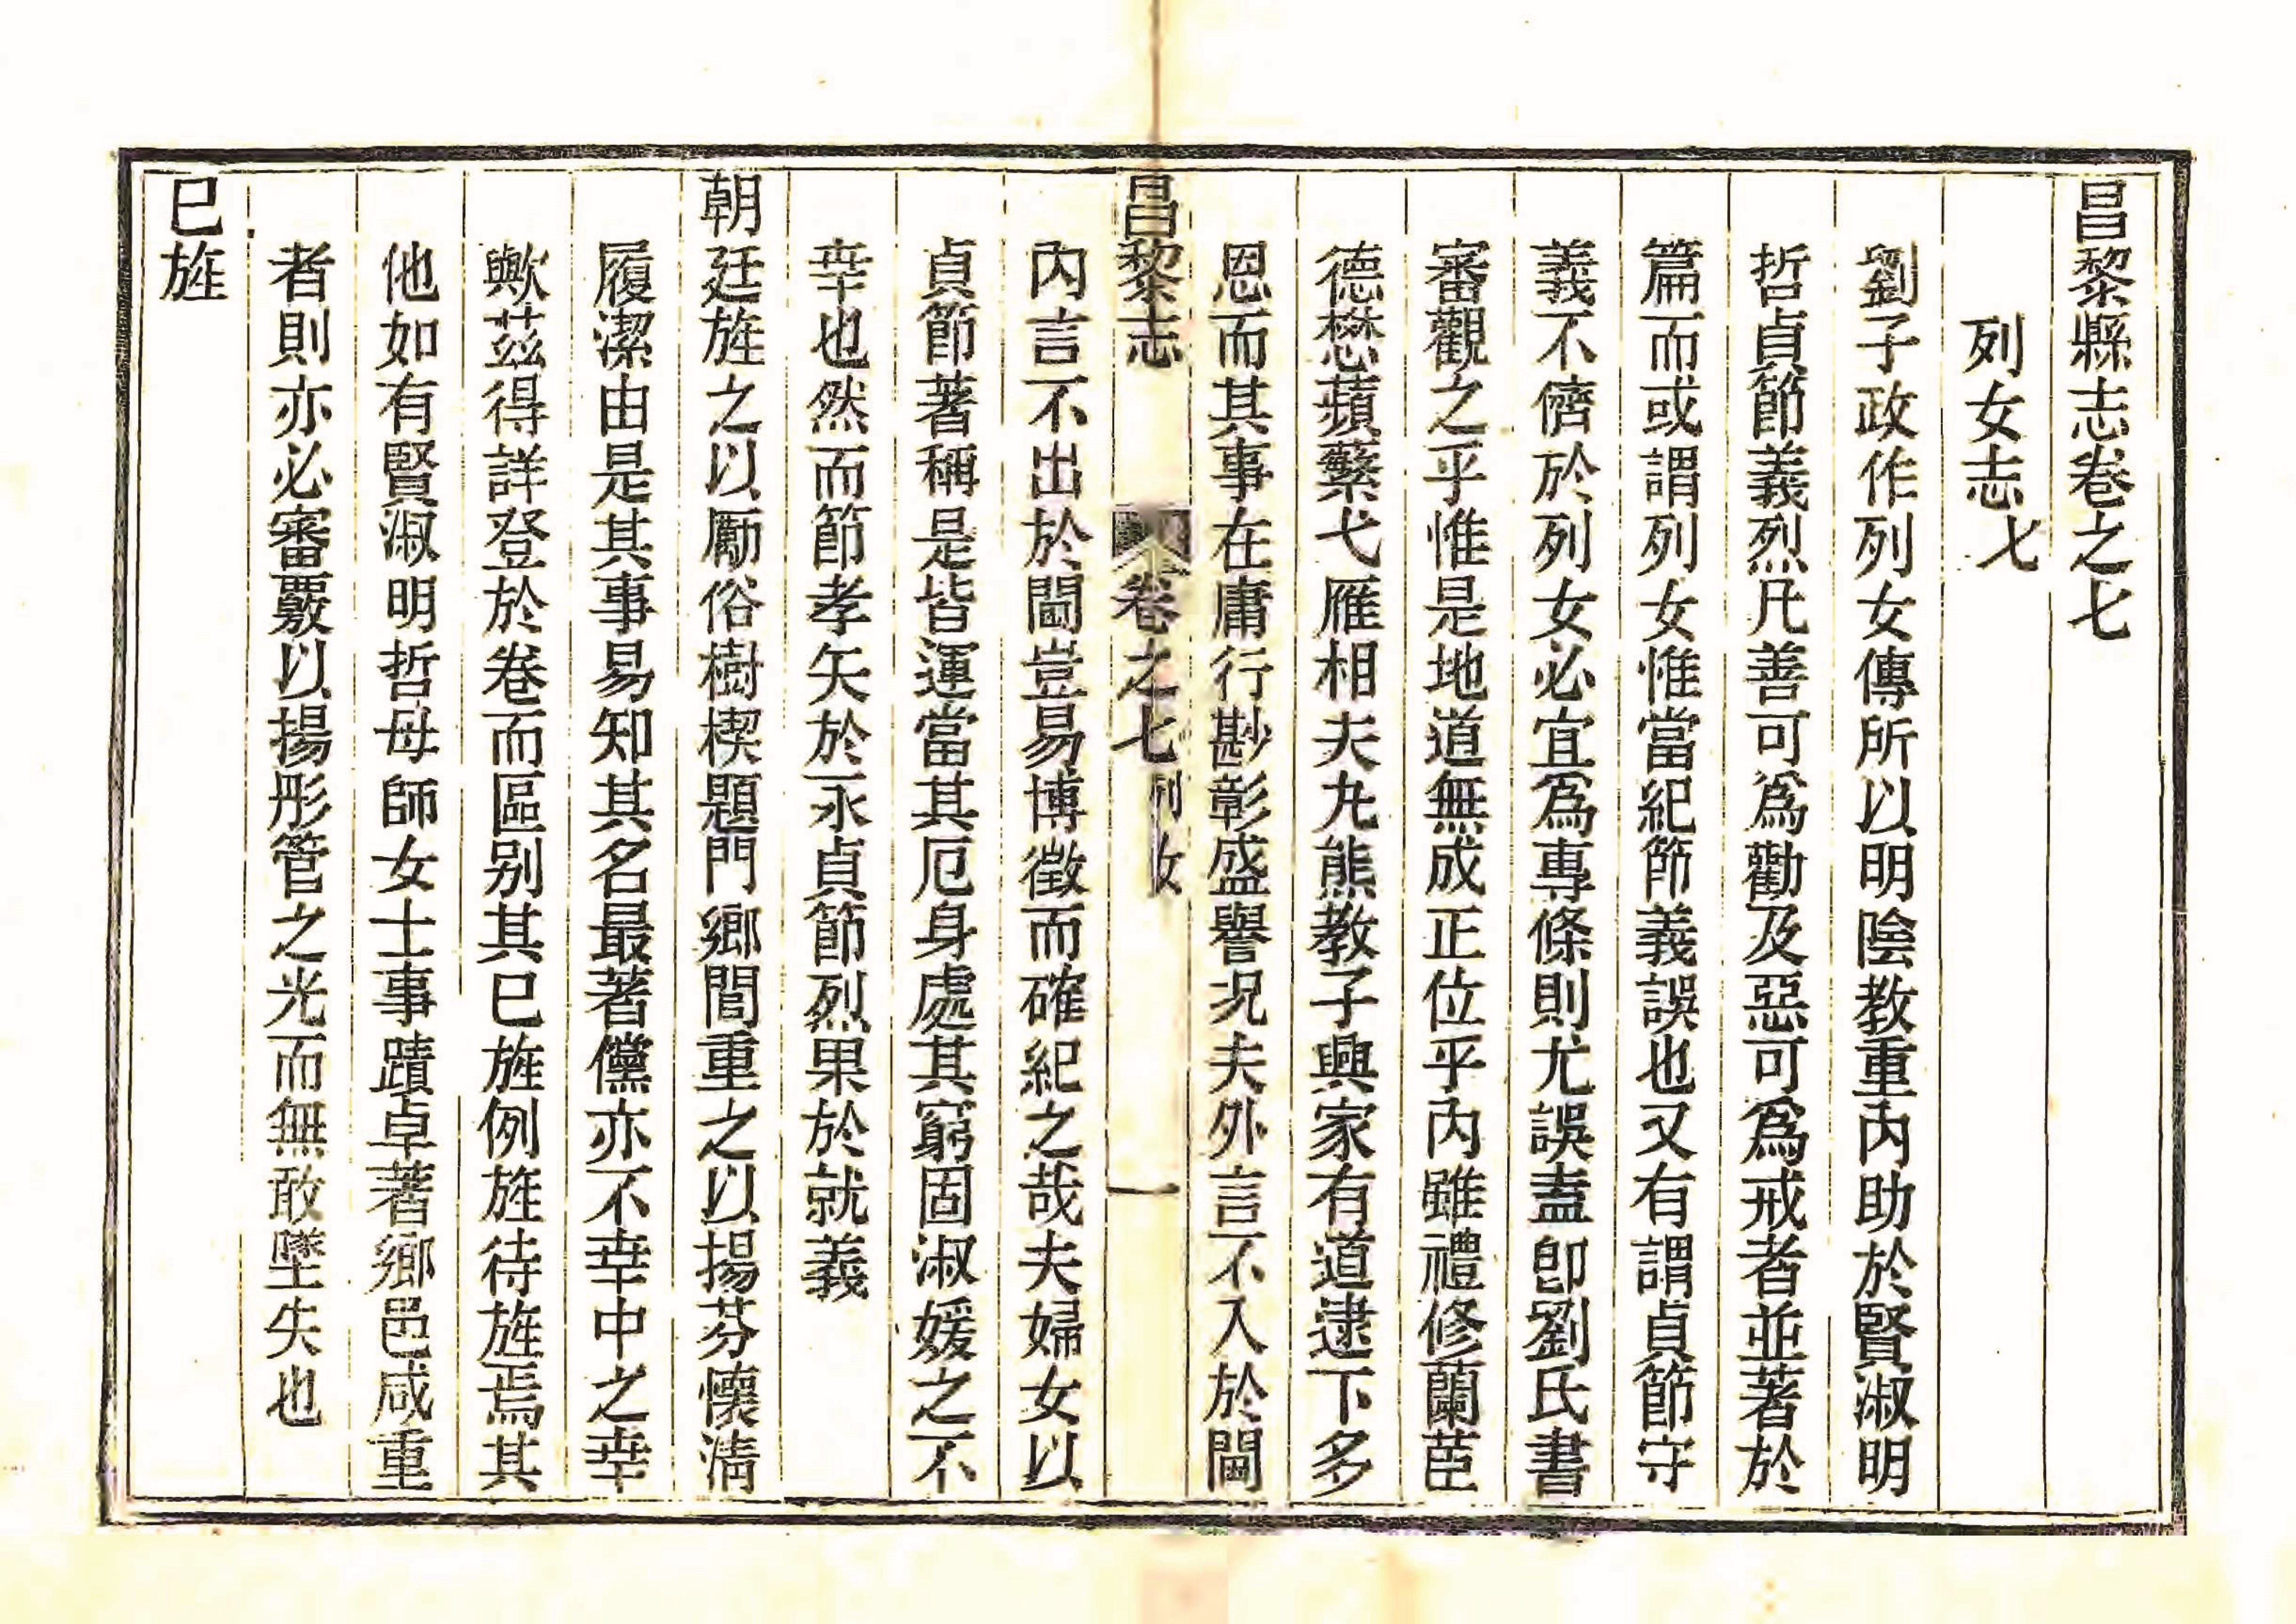 昌黎縣志卷之七
列女志七
劉子政作列女傳所以明陰教重內助於賢淑明
哲貞節義烈凡善可爲勸及惡可爲戒者並著於
篇而或謂列女惟當紀節義誤也又有謂貞節守
義不儕於列女必宜爲專條則尤誤盍卽劉氏書
審觀之乎惟是地道無成正位乎內雖禮修蘭茝
德懋蘋蘩弋雁相夫丸熊教子興家有道逮下多
恩而其事在庸行尠彰盛譽況夫外言不入於閫
昌黎志 卷之七 列女 一
內言不出於閫豈易博徵而確紀之哉夫婦女以
貞節著稱是皆運當其厄身處其窮固淑媛之不
幸也然而節孝矢於永貞節烈果於就義
朝廷旌之以勵俗樹楔題門鄉閭重之以揚芬懷清
履潔由是其事易知其名最著儻亦不幸中之幸
歟茲得詳登於卷而區别其已旌例旌待旌焉其
他如有賢淑明哲母師女士事蹟卓著鄉邑咸重
者則亦必審覈以揚彤管之光而無敢墜失也
已旌